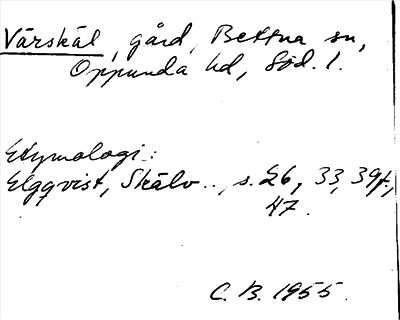 Vårskäl, gård, Bettna sn,
Oppunda hd, Söd. l.
Etymologi:
Elgqvist, Skälv.., s. 26, 33, 39f.,
47.
C. B. 1955.